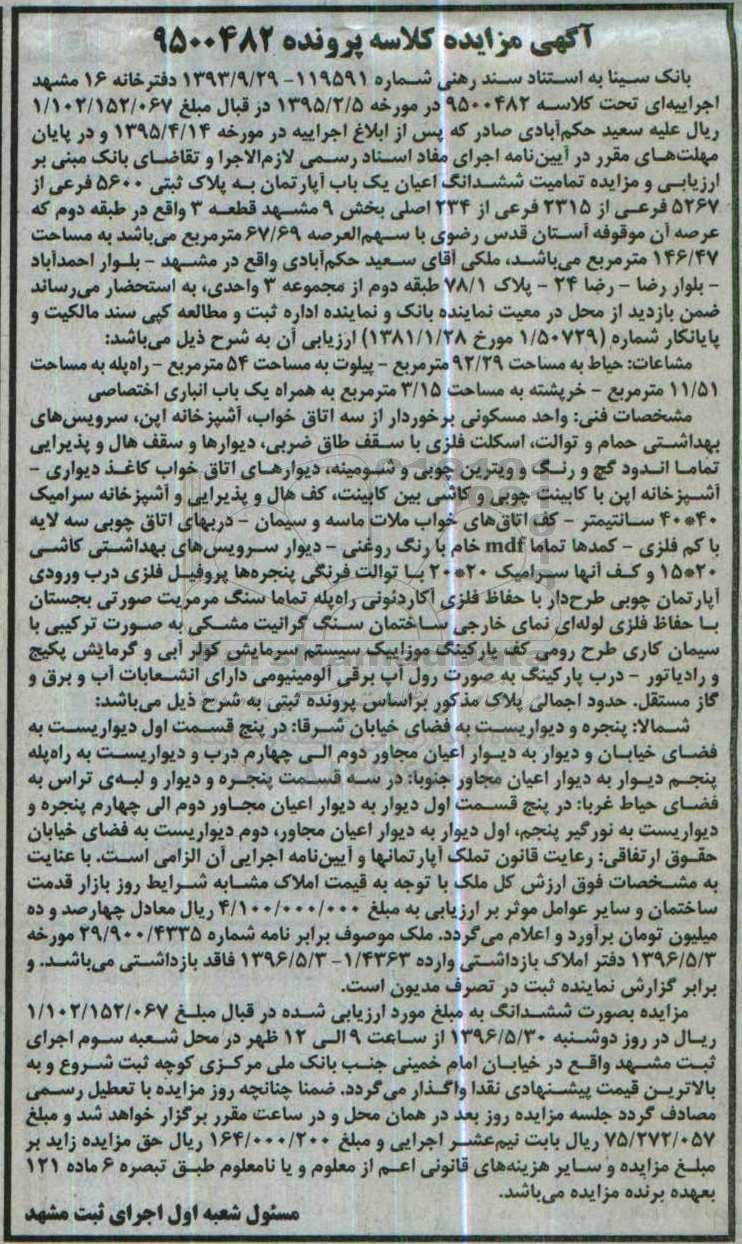 آگهی مزایده کلاسه پرونده ۹۵۰۰۴۸۲
بانک سینا به استناد سند رهنی شماره ۱۱۹۵۹۱- ۱۳۹۳/۹/۲۹ دفترخانه ۱۶ مشهد
اجراییه‌ای تحت کلاسه ۹۵۰۰۴۸۲ در مورخه ۱۳۹۵/۲/۵ در قبال مبلغ ۱/۱۰۲/۱۵۲/۰۶۷
ریال علیه سعید حکم‌آبادی صادر که پس از ابلاغ اجراییه در مورخه ۱۳۹۵/۴/۱۴ و در پایان
مهلت‌های مقرر در آیین‌نامه اجرای مفاد اسناد رسمی لازم‌الاجرا و تقاضای بانک مبنی بر
ارزیابی و مزایده تمامیت ششدانگ اعیان یک باب آپارتمان به پلاک ثبتی ۵۶۰۰ فرعی از
۵۲۶۷ فرعی از ۲۳۱۵ فرعی از ۲۳۴ اصلی بخش ۹ مشهد قطعه ۳ واقع در طبقه دوم که
عرصه آن موقوفه آستان قدس رضوی با سهم‌العرصه ۶۷/۶۹ مترمربع می‌باشد به مساحت
۱۴۶/۴۷ مترمربع می‌باشد، ملکی آقای سعید حکم‌آبادی واقع در مشهد - بلوار احمدآباد
- بلوار رضا - رضا ۲۴ - پلاک ۷۸/۱ طبقه دوم از مجموعه ۳ واحدی، به استحضار می‌رساند
ضمن بازدید از محل در معیت نماینده بانک و نماینده اداره ثبت و مطالعه کپی سند مالکیت و
پایانکار شماره (۱/۵۰۷۲۹ مورخ ۱۳۸۱/۱/۲۸) ارزیابی آن به شرح ذیل می‌باشد:
مشاعات: حیاط به مساحت ۹۲/۲۹ مترمربع - پیلوت به مساحت ۵۴ مترمربع - راه‌پله به مساحت
۱۱/۵۱ مترمربع - خرپشته به مساحت ۳/۱۵ مترمربع به همراه یک باب انباری اختصاصی
مشخصات فنی: واحد مسکونی برخوردار از سه اتاق خواب، آشپزخانه اپن، سرویس‌های
بهداشتی حمام و توالت، اسکلت فلزی با سقف طاق ضربی، دیوارها و سقف هال و پذیرایی
تماما اندود گچ و رنگ و ویترین چوبی و شومینه، دیوارهای اتاق خواب کاغذ دیواری -
آشپزخانه اپن با کابینت چوبی و کاشی بین کابینت، کف هال و پذیرایی و آشپزخانه سرامیک
۴۰*۴۰ سانتیمتر - کف اتاق‌های خواب ملات ماسه و سیمان - دربهای اتاق چوبی سه لایه
با کم فلزی - کمدها تماما mdf خام با رنگ روغنی - دیوار سرویس‌های بهداشتی کاشی
۱۵*۲۰ و کف آنها سرامیک ۲۰*۲۰ با توالت فرنگی پنجره‌ها پروفیل فلزی درب ورودی
آپارتمان چوبی طرح‌دار با حفاظ فلزی آکاردئونی راه‌پله تماما سنگ مرمریت صورتی بجستان
با حفاظ فلزی لوله‌ای نمای خارجی ساختمان سنگ گرانیت مشکی به صورت ترکیبی با
سیمان کاری طرح رومی کف پارکینگ موزاییک سیستم سرمایش کولر آبی و گرمایش پکیج
و رادیاتور - درب پارکینگ به صورت رول آپ برقی آلومینیومی دارای انشعابات آب و برق و
گاز مستقل. حدود اجمالی پلاک مذکور براساس پرونده ثبتی به شرح ذیل می‌باشد:
شمالا: پنجره و دیواریست به فضای خیابان شرقا: در پنج قسمت اول دیواریست به
فضای خیابان و دیوار به دیوار اعیان مجاور دوم الی چهارم درب و دیواریست به راه‌پله
پنجم دیوار به دیوار اعیان مجاور جنوبا: در سه قسمت پنجره و دیوار و لبه‌ی تراس به
فضای حیاط غربا: در پنج قسمت اول دیوار به دیوار اعیان مجاور دوم الی چهارم پنجره و
دیواریست به نورگیر پنجم، اول دیوار به دیوار اعیان مجاور، دوم دیواریست به فضای خیابان
حقوق ارتفاقی: رعایت قانون تملک آپارتمانها و آیین‌نامه اجرایی آن الزامی است. با عنایت
به مشخصات فوق ارزش کل ملک با توجه به قیمت املاک مشابه شرایط روز بازار قدمت
ساختمان و سایر عوامل موثر بر ارزیابی به مبلغ ۴/۱۰۰/۰۰۰/۰۰۰ ریال معادل چهارصد و ده
میلیون تومان برآورد و اعلام می‌گردد. ملک موصوف برابر نامه شماره ۲۹/۹۰۰/۴۳۳۵ مورخه
۱۳۹۶/۵/۳ دفتر املاک بازداشتی وارده ۱/۴۳۶۳- ۱۳۹۶/۵/۳ فاقد بازداشتی می‌باشد. و
برابر گزارش نماینده ثبت در تصرف مدیون است.
مزایده بصورت ششدانگ به مبلغ مورد ارزیابی شده در قبال مبلغ ۱/۱۰۲/۱۵۲/۰۶۷
ریال در روز دوشنبه ۱۳۹۶/۵/۳۰ از ساعت ۹ الی ۱۲ ظهر در محل شعبه سوم اجرای
ثبت مشهد واقع در خیابان امام خمینی جنب بانک ملی مرکزی کوچه ثبت شروع و به
بالاترین قیمت پیشنهادی نقدا واگذار می‌گردد. ضمنا چنانچه روز مزایده با تعطیل رسمی
مصادف گردد جلسه مزایده روز بعد در همان محل و در ساعت مقرر برگزار خواهد شد و مبلغ
۷۵/۲۷۲/۰۵۷ ریال بابت نیم‌عشر اجرایی و مبلغ ۱۶۴/۰۰۰/۲۰۰ ریال حق مزایده زاید بر
مبلغ مزایده و سایر هزینه‌های قانونی اعم از معلوم و یا نامعلوم طبق تبصره ۶ ماده ۱۲۱
بعهده برنده مزایده می‌باشد.
مسئول شعبه اول اجرای ثبت مشهد